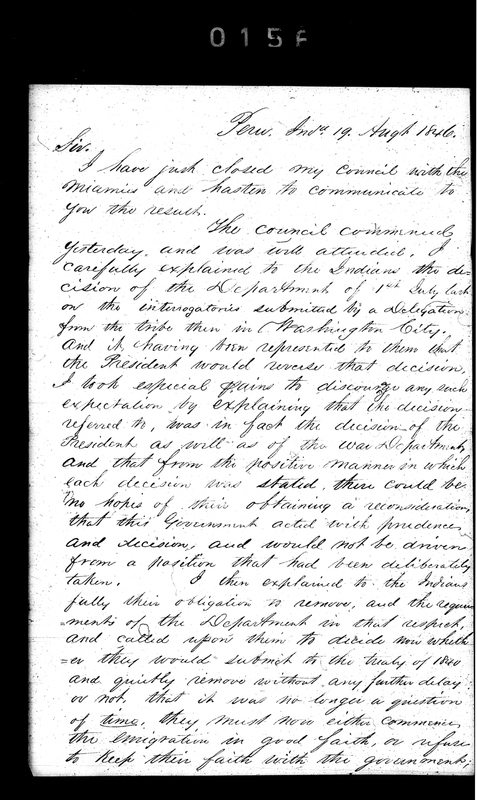 015F
Peru. Inda. 19. Augt 1846.
Sir.
I have just closed my council with the
Miamies and hasten to communicate to
you the result.
The council commenced
yesterday, and was well attended. I
carefully explained to the Indians the de-
cision of the Department of 1st July last
on the interrogatories submitted by a Delegation
from the tribe then in Washington City.
And it having been represented to them that
the President would reverse that decision,
I took especial pains to discourage any such
expectation by explaining that the decision
referred to, was in fact the decision of the
President as well as of the War Department,
and that from the positive manner in which
each decision was stated, there could be
no hopes of their obtaining a reconsideration,
that this Government acted with prudence
and decision, and would not be driven
from a position that had been deliberately
taken. I then explained to the Indians
fully their obligation to remove, and the require
=ments of the Department in that respect,
and called upon them to decide now wheth
=er they would submit to the treaty of 1840
and quietly remove without any further delay
or not, that it was no longer a question
of time, they must now either commence
the emigration in good faith, or refuse
to keep their faith with the government;